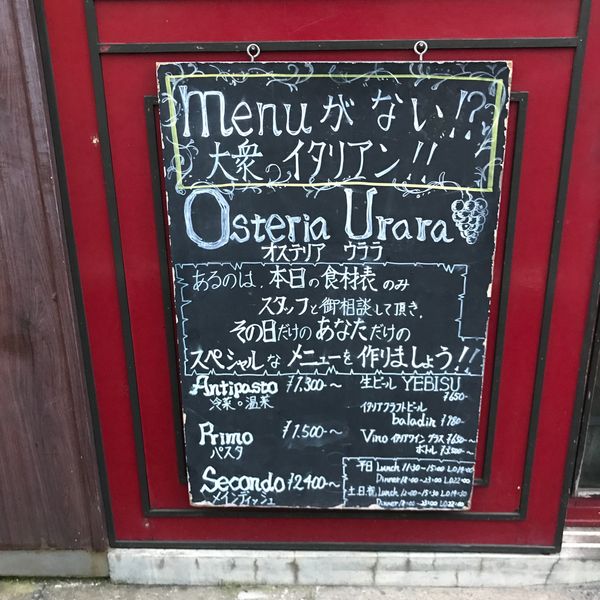 Menuがない!?
大衆イタリアン!!
Osteria Urara
オステリア ウララ
あるのは、本日の食材表のみ
スタッフと御相談して頂き、
その日だけのあなただけの
スペシャルなメニューを作りましょう!!
Antipasto ¥1,300〜
冷菜。温菜
Primo ¥1,500〜
パスタ
Secondo ¥2400〜
メインディッシュ
生ビール YEBISU
¥650-
イタリアクラフトビール
baladin ¥780-
Vino イタリアワイン グラス ¥650〜
ボトル ¥3,500〜
平日 Lunch 11:30-15:00 L.O.14:00
Dinner 18:00-23:00 L.O.22:00
土日祝 Lunch 12:00-15:00 L.O.14:30
Dinner 18:00-23:00 L.O.22:00